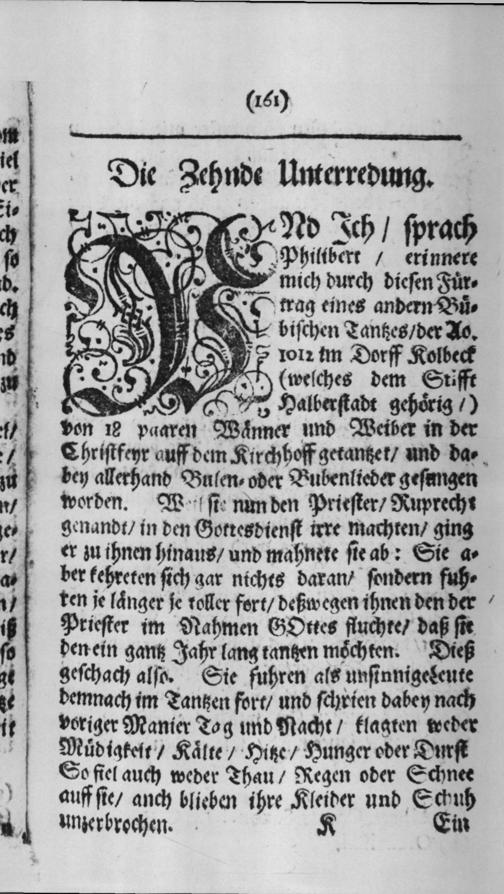 (161)
Die Zehnde Unterredung.
UNd Ich / sprach
Philibert / erinnere
mich durch diesen Für-
trag eines andern Bü-
bischen Tantzes/der Ao.
1012 im Dorff Kolbeck
(welches dem Stifft
Halberstadt gehörig /)
von 18 paaren Männer und Weiber in der
Christfeyr auff dem Kirchhoff getantzet/ und da-
bey allerhand Bulen- oder Bubenlieder gesungen
worden. Weil sie nun den Priester/ Ruprecht
genandt/ in den Gottesdienst irre machten/ ging
er zu ihnen hinaus/ und mahnete sie ab: Sie a-
ber kehreten sich gar nichts daran/ sondern fuh-
ren je länger je toller fort/ deßwegen ihnen den der
Priester im Nahmen GOttes fluchte/ daß sie
den ein gantz Jahr lang tantzen möchten. Dieß
geschach also. Sie fuhren als unsinnige Leute
demnach im Tantzen fort/ und schrien dabey nach
voriger Manier Tag und Nacht/ klagten weder
Müdigkeit/ Kälte/ Hitze/ Hunger oder Durst
So fiel auch weder Thau/ Regen oder Schnee
auff sie/ anch blieben ihre Kleider und Schuh
unzerbrochen. K Ein